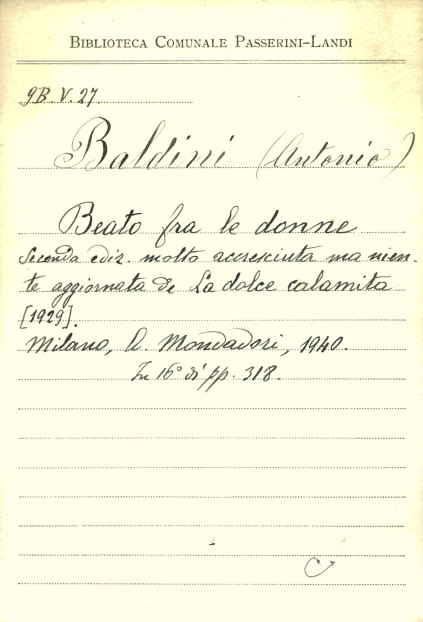 BIBLIOTECA COMUNALE PASSERINI-LANDI
9B.V.27.
Baldini (Antonio)
Beato fra le donne
Seconda ediz. molto accresciuta ma nien-
te aggiornata de La dolce calamita
[1929].
Milano, A. Mondadori, 1940.
In 16° di pp. 318.